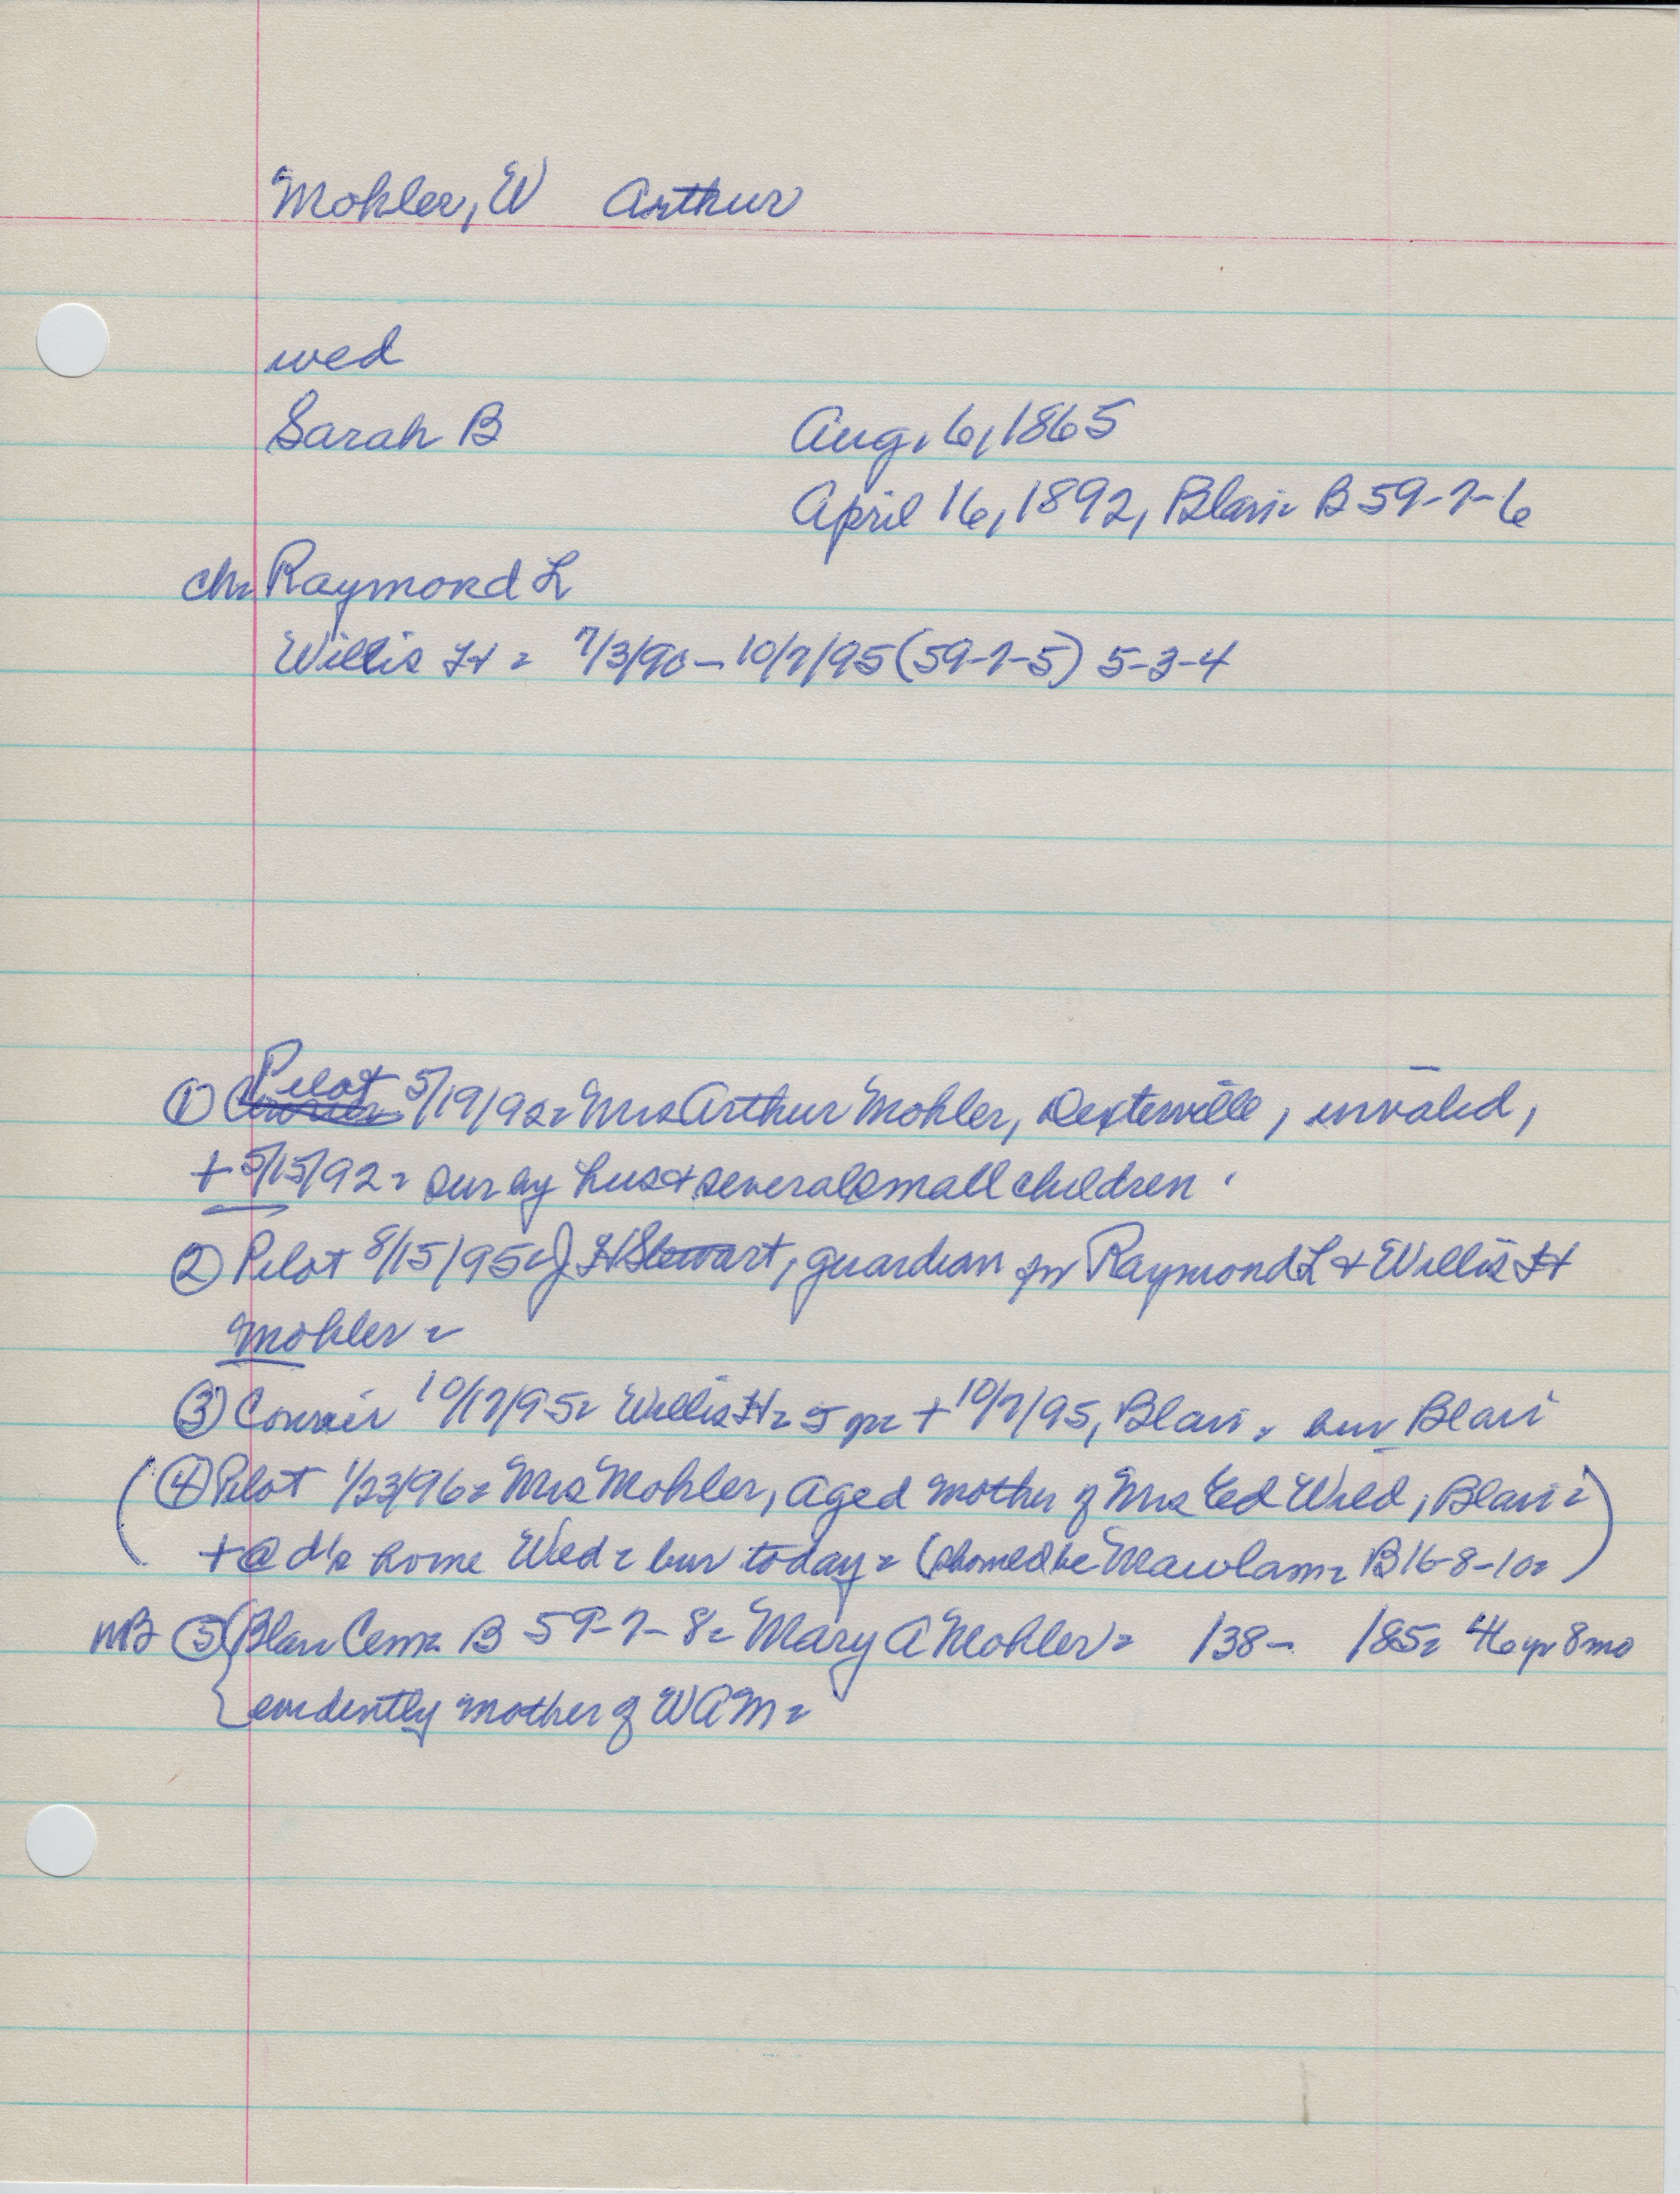 Mohler, W Arthur
wed
Sarah B Aug. 6, 1865
April 16, 1892, Blair B 59-7-6
ch= Raymond L
Willis H = 7/3/90 - 10/7/95 (59-7-5) 5-3-4
① Pilot 5/19/92= Mrs Arthur Mohler, Dexterville, invalid,
+ 5/15/92= sur by hus + several small children.
② Pilot 8/15/95= J H Stewart, guardian for Raymond L + Willis H
Mohler =
③ Courier 10/17/95= Willis H= 5 yr + 10/7/95, Blair, bur Blair
(④ Pilot 1/23/96= Mrs Mohler, aged mother of Mrs Ed Wild, Blair=
+ @ d's home Wed= bur today= (should be Mawlam= B 16-8-10=)
NB ⑤ {Blair Cem= B 59-7-8= Mary A Mohler= 138- 185= 46 yr 8 mo
{evidently mother of WAM=